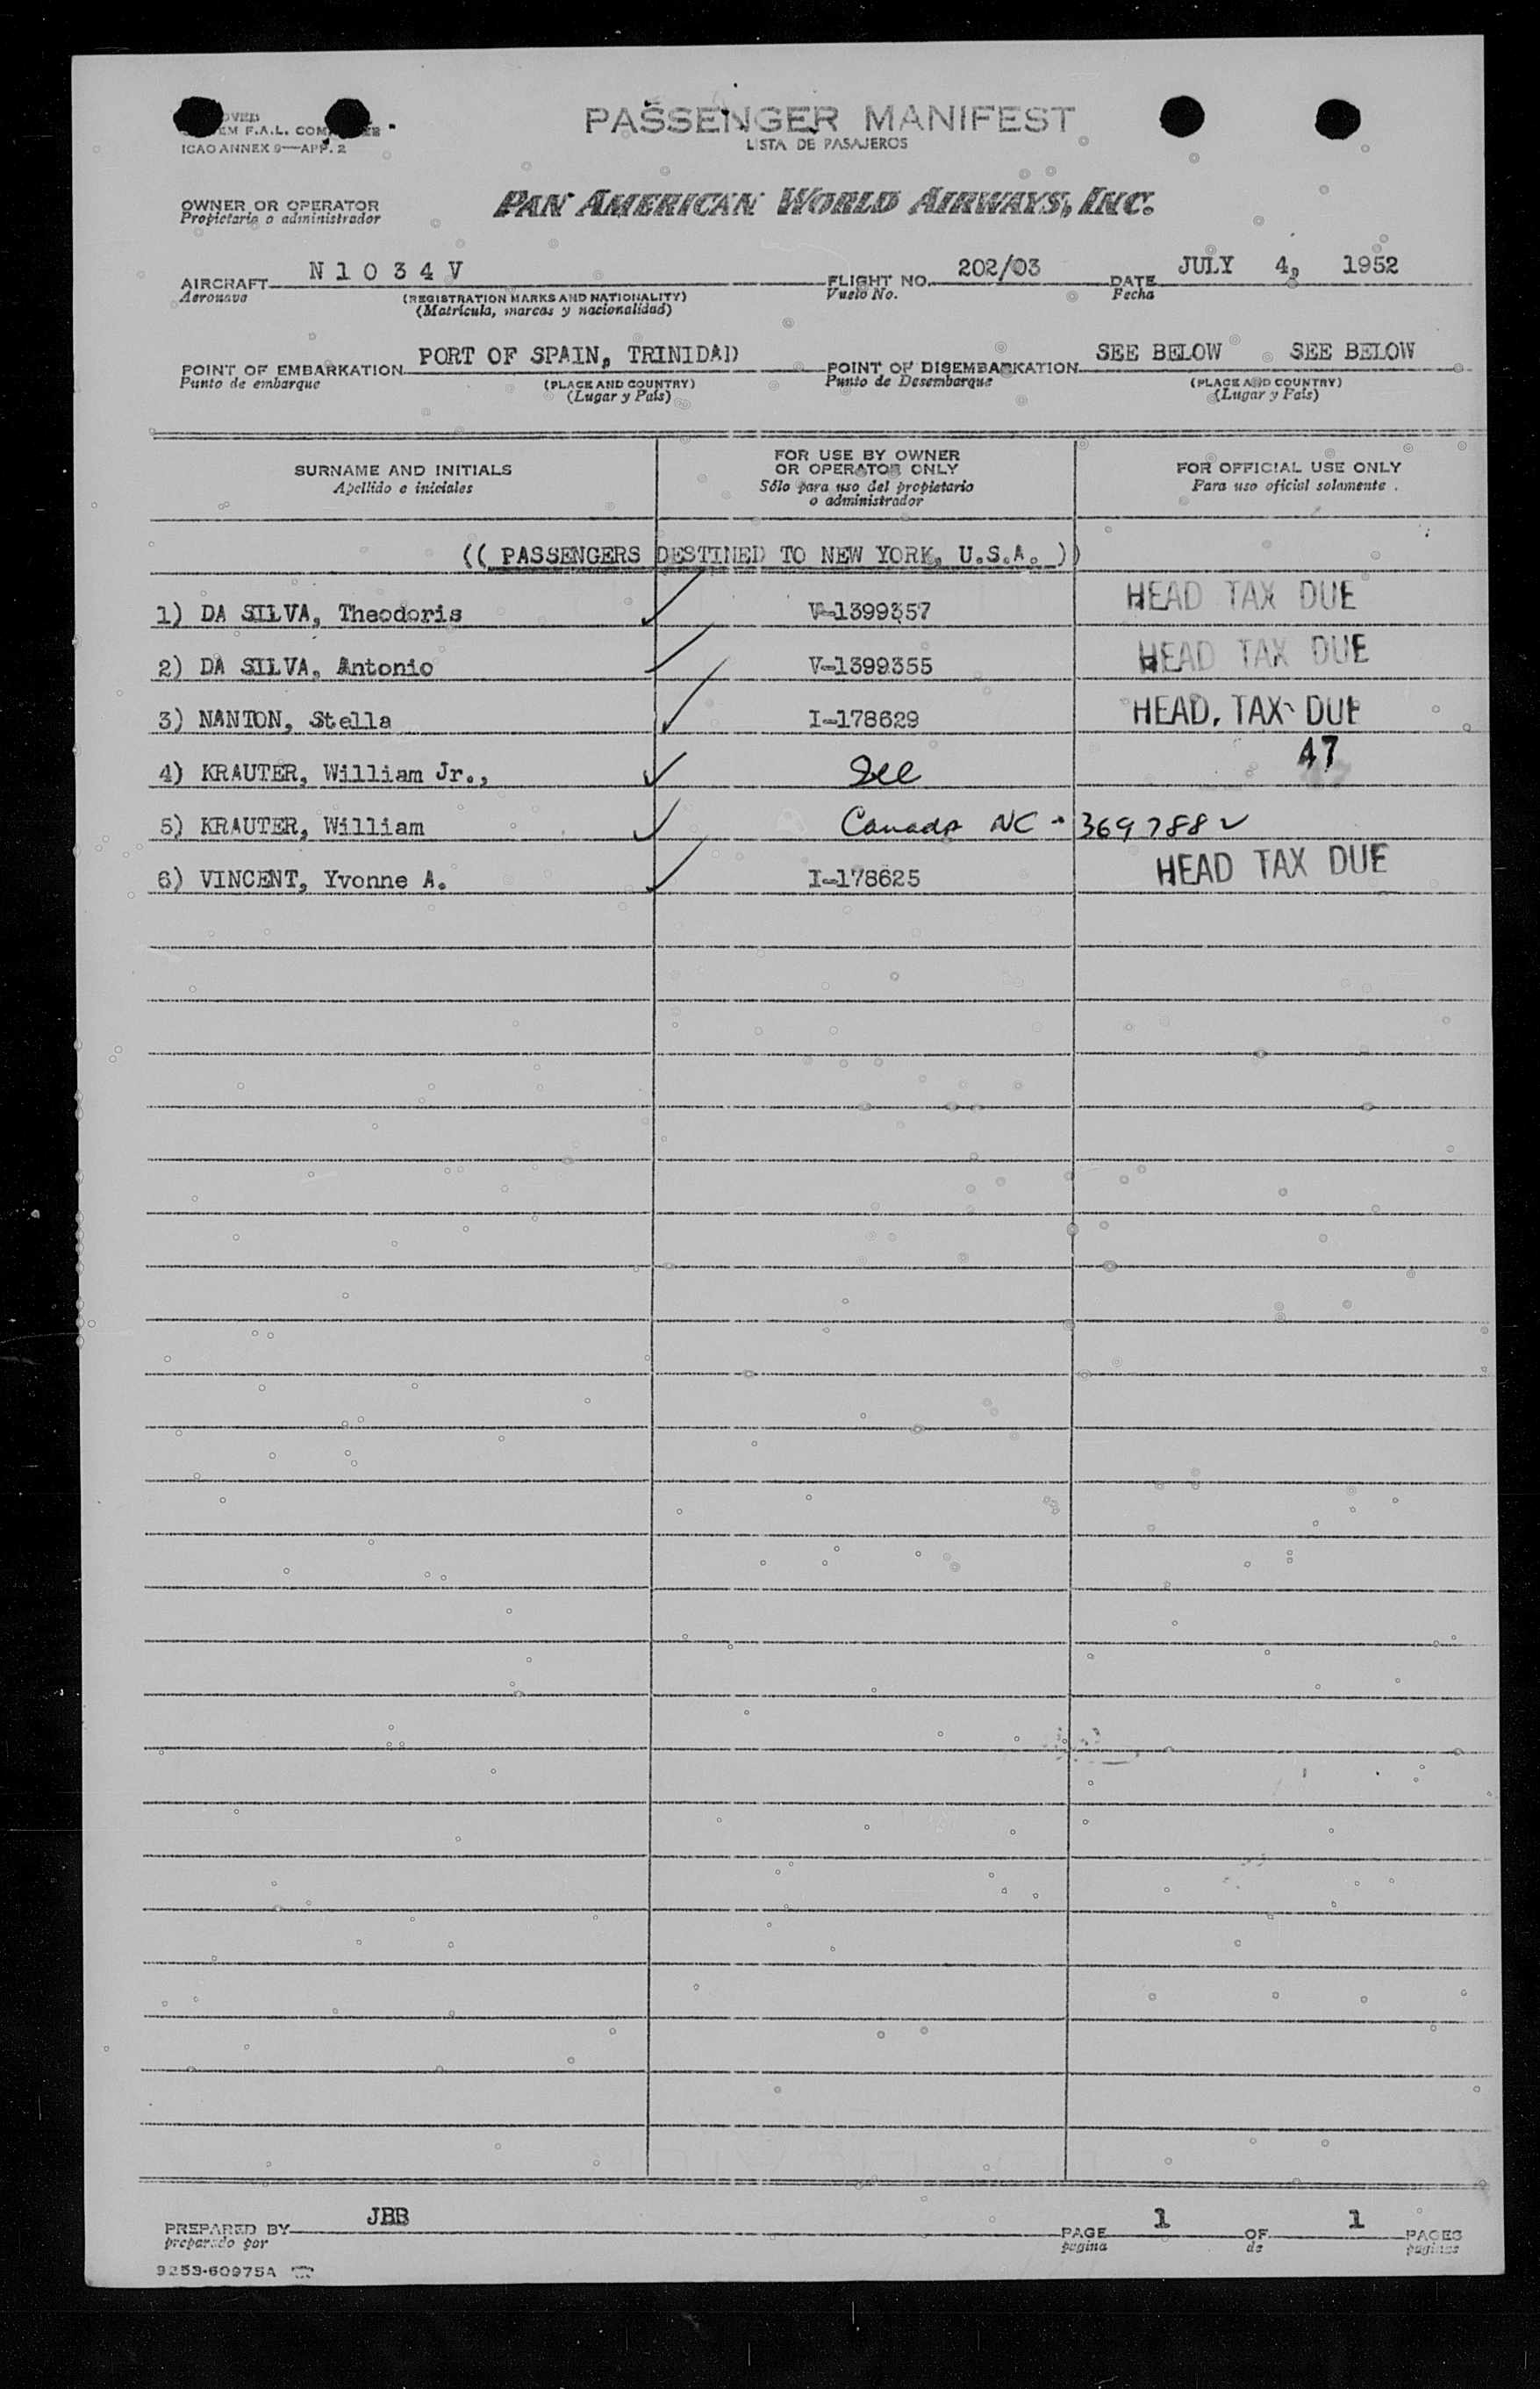 PASSENGER MANIFEST
LISTA DE PASAJEROS
F.A.L.
ICAO ANNEX 9—APP. 2
OWNER OR OPERATOR
Propietario o administrador
PAN AMERICAN WORLD AIRWAYS, INC.
AIRCRAFT N 1 0 3 4 V FLIGHT NO. 202/03 DATE JULY 4, 1952
Aeronave (REGISTRATION MARKS AND NATIONALITY) Vuelo No. Fecha
(Matrícula, marcas y nacionalidad)
POINT OF EMBARKATION PORT OF SPAIN, TRINIDAD POINT OF DISEMBARKATION SEE BELOW SEE BELOW
Punto de embarque (PLACE AND COUNTRY) Punto de Desembarque (PLACE AND COUNTRY)
(Lugar y País) (Lugar y País)
SURNAME AND INITIALS
Apellido e iniciales
FOR USE BY OWNER
OR OPERATOR ONLY
Sólo para uso del propietario
o administrador
FOR OFFICIAL USE ONLY
Para uso oficial solamente .
(( PASSENGERS DESTINED TO NEW YORK, U.S.A. ))
1) DA SILVA, Theodoris V-1399357 HEAD TAX DUE
2) DA SILVA, Antonio V-1399355 HEAD TAX DUE
3) NANTON, Stella I-178629 HEAD TAX DUE
4) KRAUTER, William Jr., 47
5) KRAUTER, William Canada NC - 3697882
6) VINCENT, Yvonne A. I-178625 HEAD TAX DUE
PREPARED BY JBB PAGE 1 OF 1 PAGES
preparado por pagina de paginas
9253-60975A